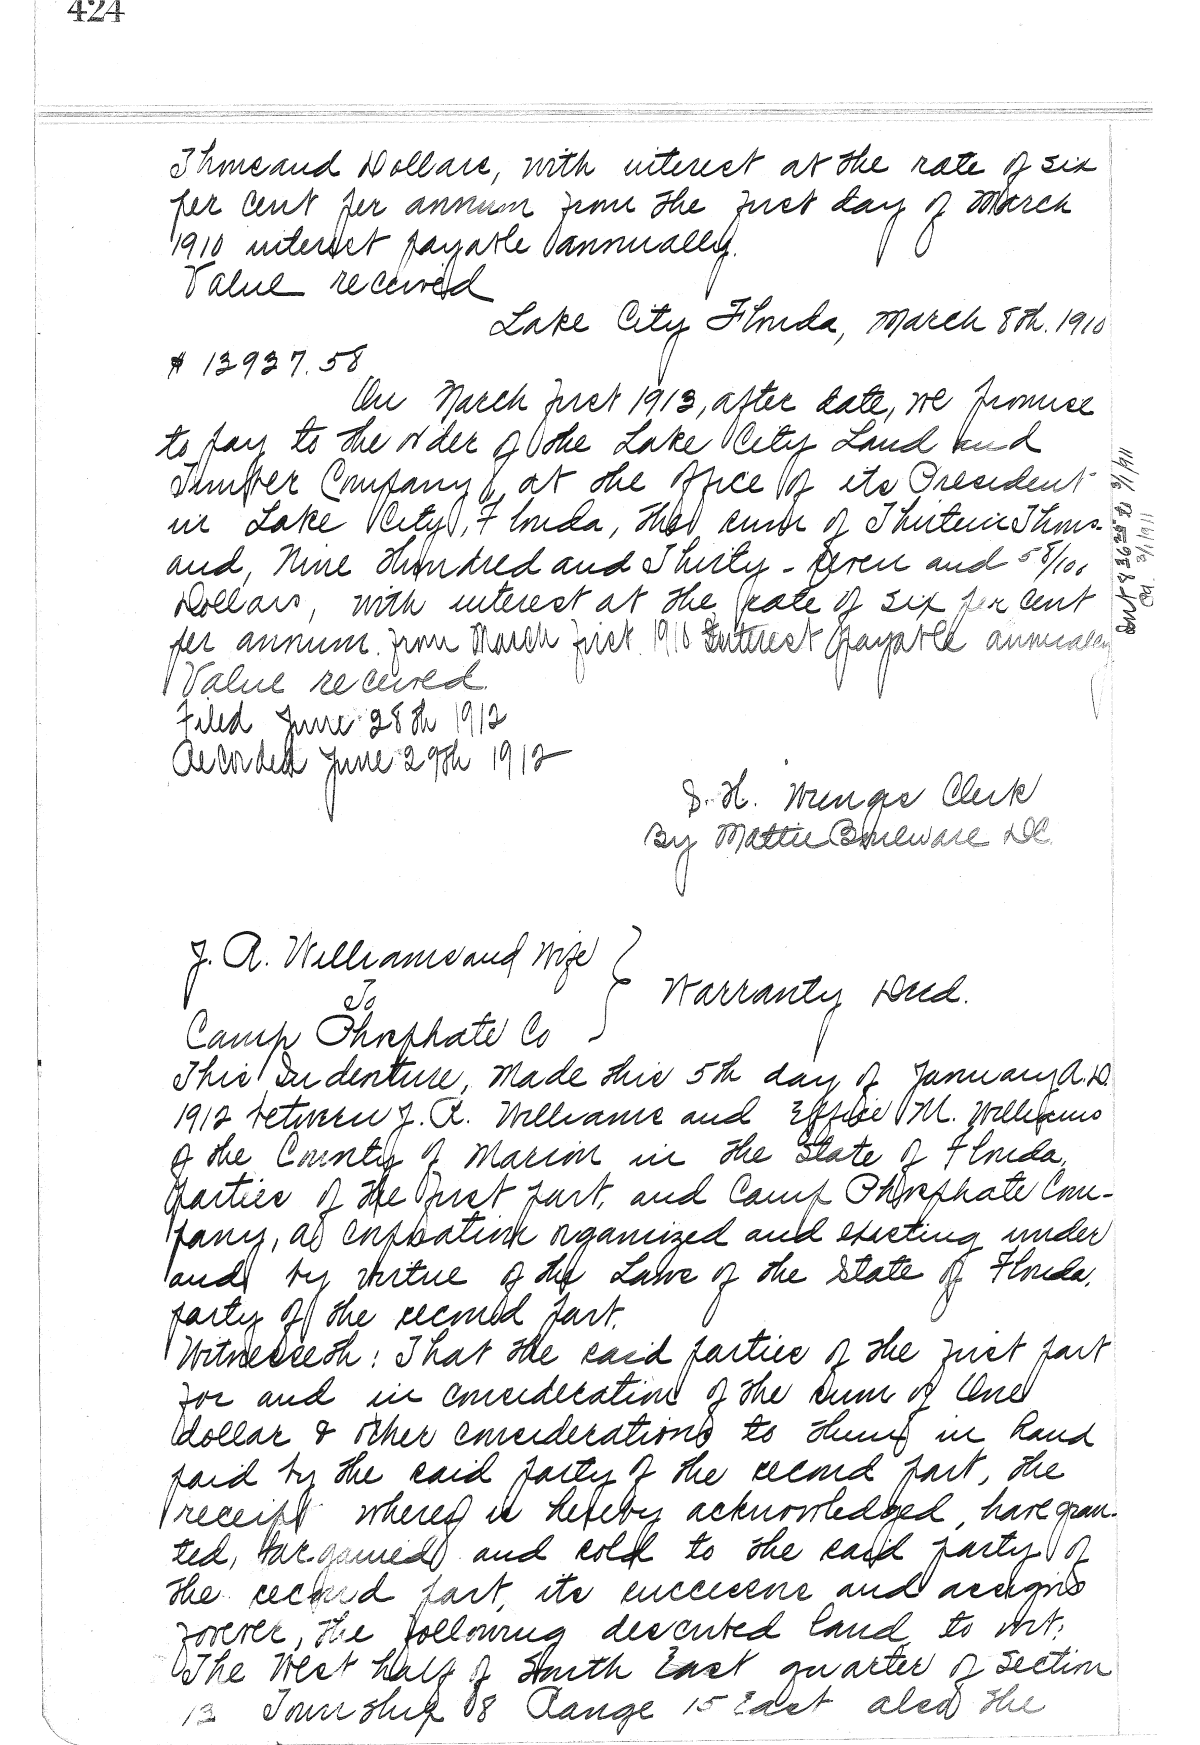 424
Thousand Dollars, with interest at the rate of six
per cent per annum from the first day of March
1910 interest payable annually.
Value received
Lake City Florida, March 8th. 1910
$ 13937.58
On March first 1913, after date, we promise
to pay to the order of the Lake City Land and
Timber Company, at the office of its President
in Lake City, Florida, the sum of Thirteen Thous-
and, Nine Hundred and Thirty-seven and 58/100
Dollars, with interest at the rate of six per cent
per annum from March first 1910 Interest payable annually
Value received.
Filed June 28th 1912
Recorded June 29th 1912
Clerk
By Mattie DC.
J. A. Williams and Wife
To
Camp Phosphate Co
Warranty Deed.
This Indenture, Made this 5th day of January A.D.
1912 between J. A. Williams and Effie M. Williams
of the County of Marion in the State of Florida,
parties of the first part, and Camp Phosphate Com-
pany, a corporation organized and existing under
and by virtue of the Laws of the State of Florida,
party of the second part.
Witnesseth: That the said parties of the first part
for and in consideration of the sum of One
dollar & other considerations to them in hand
paid by the said party of the second part, the
receipt whereof is hereby acknowledged, have gran-
ted, bargained and sold to the said party of
the second part, its successors and assigns
forever, the following described land, to wit:
The West half of South East quarter of Section
13 Township 8 Range 15 East also the